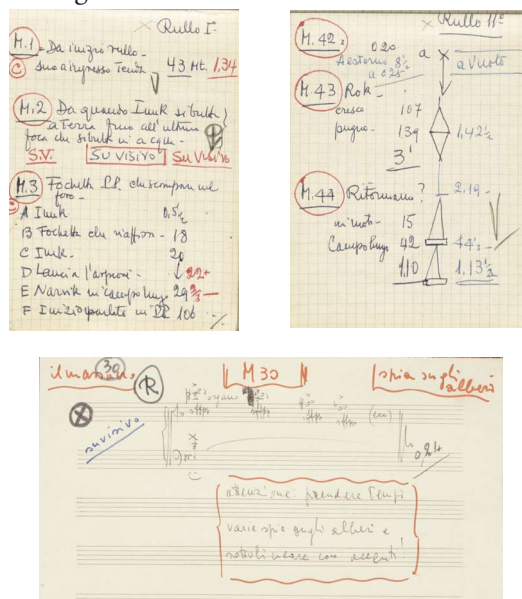 Rullo I°
M.1 = Da inizio rullo -
suo a ingresso Tenda 43 Mt. 1,34
M.2 Da quando Inuk si butta
a terra fino all'ultima
foca che si butta in acqua -
S.V. SU VISIVO SU VISIVO
M.3 Fochetta P.P. che scompare nel
foro -
A Inuk 0,5 1/2
B Fochetta che riaffiora - 18
C Inuk - 20
D Lancia l'arpione - 22+
E Narvik in campo lungo 29
F Inizio parlato in PP 106
Rullo 11°
M.42 = 020 a X a vuoto
a 025
M.43 Rok - 107
pugno - 139 1,42 1/2
3'
M.44 Ritornano? 2,19 -
in moto - 15
Campo lungo 42 44'
110 1,13 1/2
30 R M30 spia sugli
alberi
su visivo organo
0,24
attenzione: prendere Tempi
varie spie sugli alberi e
sottolineare con accenti